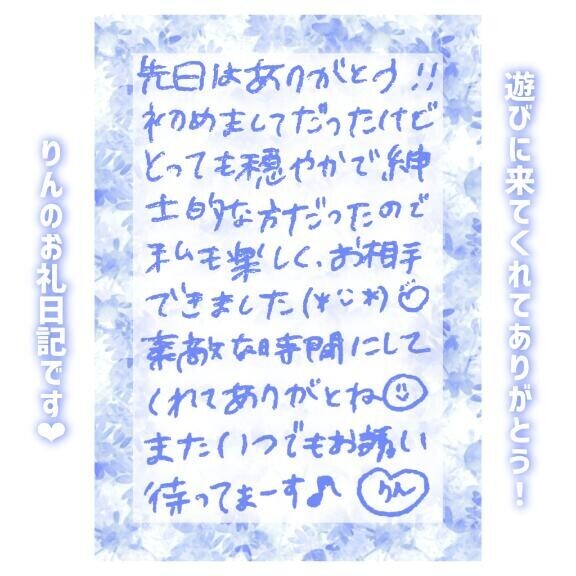 遊びに来てくれてありがとう!
先日はありがとう!!
初めましてだったけど
とっても穏やかで、紳
士的な方だったので
私も楽しく、お相手
できました(*¨*)♡
素敵な時間にして
くれてありがとね☺
またいつでもお誘い
待ってまーす♪ りん
りんのお礼日記です❤